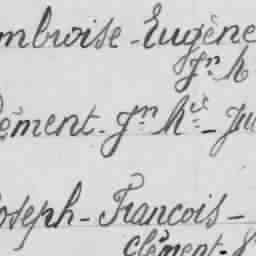 mbroise - Eugène
Jn
lément - Jn Mie - Ju
oseph - François -
Clément -